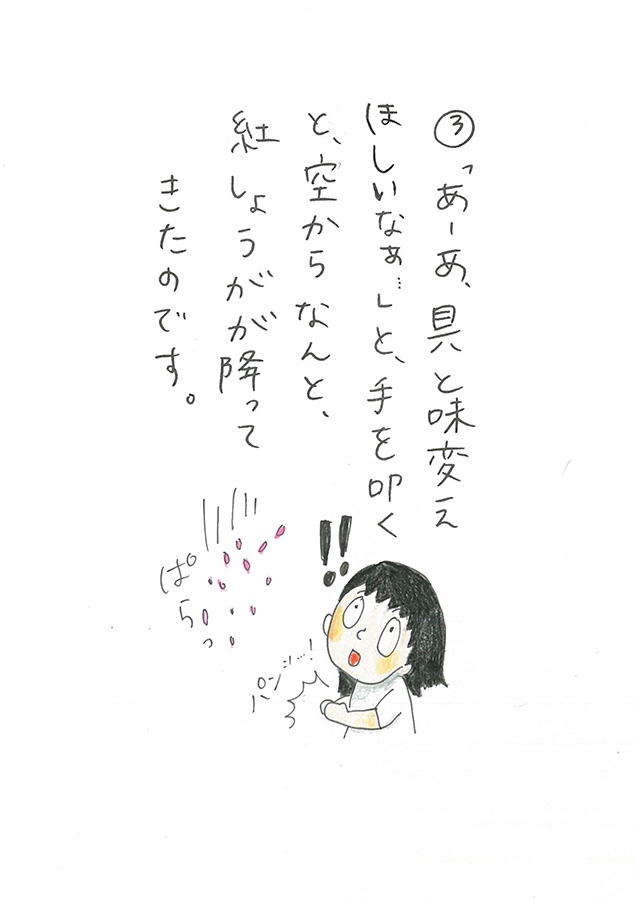 ③「あーあ、具と味変え
ほしいなぁ…」と、手を叩く
と、空からなんと、
紅しょうがが降って
きたのです。
ぱらっ
パン…!
!!